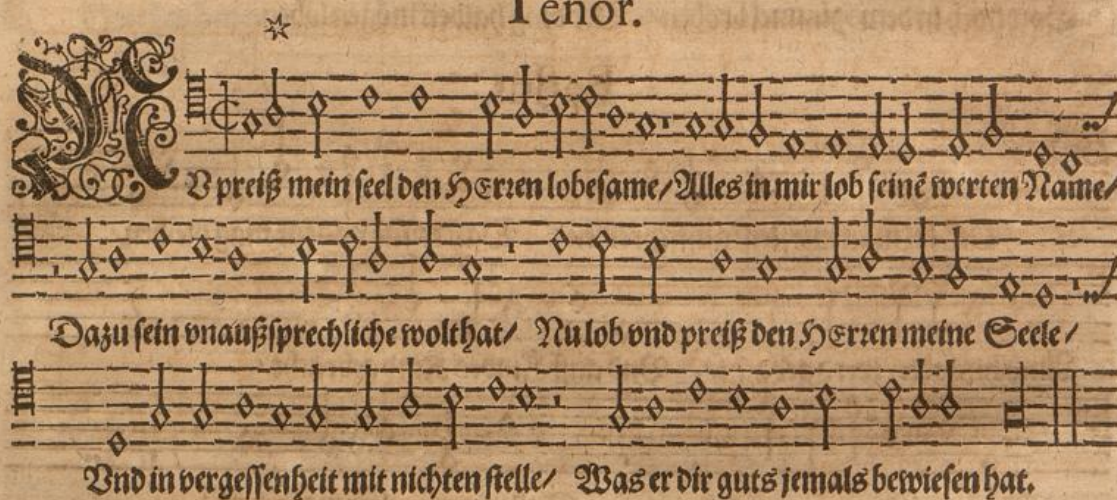 Tenor.
NU preiß mein seel den HErren lobesame/ Alles in mir lob seinē werten Name/
Dazu sein vnaußsprechliche wolthat/ Nu lob vnd preiß den HErren meine Seele/
Vnd in vergessenheit mit nichten stelle/ Was er dir guts jemals bewiesen hat.